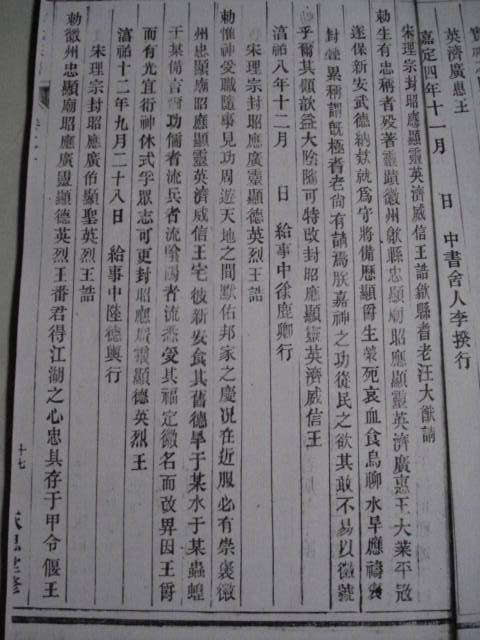 英濟廣惠王
嘉定四年十一月 日 中書舍人李揆行
宋理宗封昭應顯靈英濟威信王誥歙縣耆老汪大猷請
勅生有忠稱者歿著靈蹟徽州歙縣忠顯廟昭應顯靈英濟廣惠王大業平寇
遂保新安武德納欵就爲守將備歷顯爵生榮死哀血食烏聊水旱應禱褒
封雖累稱謂旣極耆老尙有請焉朕嘉神之功從民之欲其敢不易以徽號
乎爾其傾歆益大陰隲可特改封昭應顯靈英濟威信王
淳祐八年十二月 日 給事中徐鹿卿行
宋理宗封昭應廣靈顯德英烈王誥
勅惟神受職隨事見功周遊天地之間默佑邦家之慶况在近服必有崇褒徽
州忠顯廟昭應顯靈英濟威信王宅彼新安食其舊德旱于某水于某蟲蝗
于某備言爾功儒者流民者流
者流悉受其福定徽名而改畀因王爵
而有光宜衍神休式孚眾志可更封昭應廣靈顯德英烈王
淳祐十二年九月二十八日 給事中陸德輿行
宋理宗封昭應廣佑顯聖英烈王誥
勅徽州忠顯廟昭應廣靈顯德英烈王番君得江湖之心忠具存于甲令偃王
十七